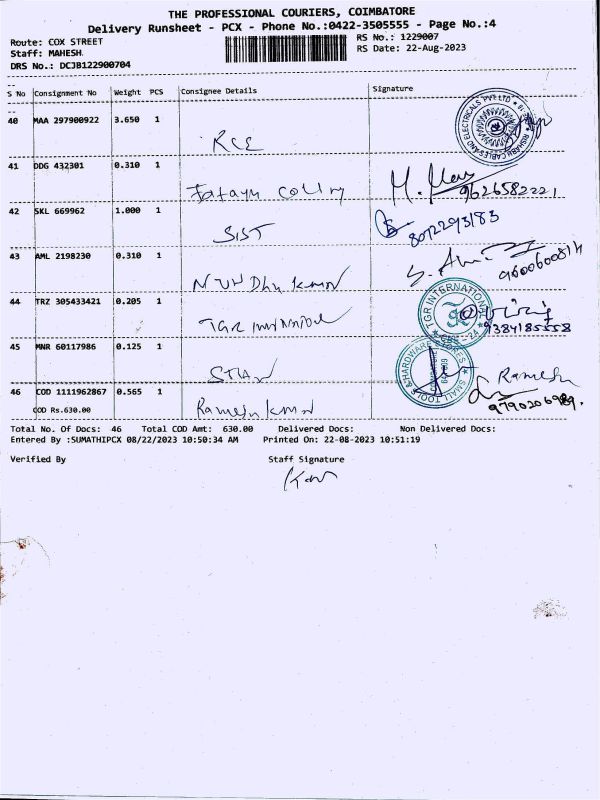 THE PROFESSIONAL COURIERS, COIMBATORE
Delivery Runsheet - PCX - Phone No.:0422-3505555 - Page No.:4
Route: COX STREET
RS No.: 1229007
Staff: MAHESH.
RS Date: 22-Aug-2023
DRS No.: DCJB122900704
S No Consignment No Weight PCS Consignee Details Signature
40 MAA 297900922 3.650 1
RCE
41 DDG 432301 0.310 1
M.
9626582221
42 SKL 669962 1.000 1
SIST
8072293183
43 AML 2198230 0.310 1
9600600814
44 TRZ 305433421 0.205 1
TGR
TGR INTERNATIONAL
CBE - 24
9384185558
45 MNR 60117986 0.125 1
46 COD 1111962867 0.565 1
COD Rs.630.00
Ramesh
SMALL TOOLS & HARDWARE STORES
Ramesh
9790206989.
Total No. Of Docs: 46 Total COD Amt: 630.00 Delivered Docs: Non Delivered Docs:
Entered By :SUMATHIPCX 08/22/2023 10:50:34 AM Printed On: 22-08-2023 10:51:19
Verified By Staff Signature